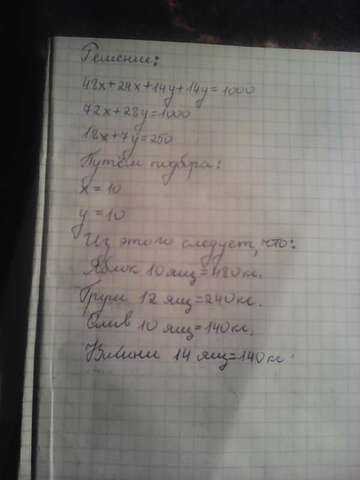 Решение:
48x+24x+14y+14y=1000
72x+28y=1000
18x+7y=250
Путём подбора:
x=10
y=10
Из этого следует, что:
Яблок 10 ящ=480кг.
Груш 12 ящ=240кг.
Слив 10 ящ=140кг.
14 ящ=140кг.